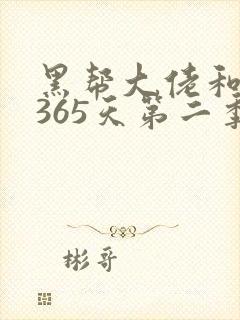 黑帮大佬和
365天第二季
彬哥